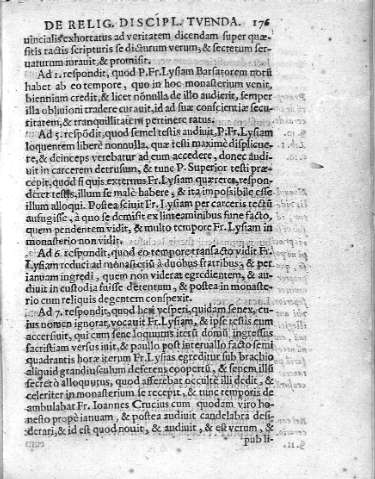 DE RELIG. DISCIPL. TVENDA. 176
uincialis exhortatus ad veritatem dicendam super quæ-
sitis tactis scripturis se dicturum verum, & secretum ser-
uaturum iurauit, & promisit.
Ad 1. respondit, quod P. Fr. Lysiam Barsatorem notū
habet ab eo tempore, quo in hoc monasterium venit,
biennium credit, & licet nōnulla de illo audierit, semper
illa obliuioni tradere curauit, id ad suæ conscientiæ secu-
ritatem, & tranquillitatem pertinere ratus.
Ad 5. respōdit, quod semel testis audiuit P. Fr. Lysiam
loquentem liberè nonnulla, quæ testi maximè displicue-
re, & deinceps verebatur ad eum accedere, donec audi-
uit in carcerem detrusum, & tunc P. Superior testi præ-
cepit, quod si quis externus Fr. Lysiam quæreret, respon-
deret testis, illum se malè habere, & ita impossibile esse
illum alloqui. Postea sciuit Fr. Lysiam per carceris tectū
aufugisse, à quo se demisit ex linteaminibus fune facto,
quem pendentem vidit, & multo tempore Fr. Lysiam in
monasterio non vidit.
Ad 6. respondit, quod eo tempore transacto vidit Fr.
Lysiam reduci ad monasteriū à duobus fratribus, & per
ianuam ingredi, quem non viderat egredientem, & au-
diuit in custodia fuisse detentum, & postea in monaste-
rio cum reliquis degentem conspexit.
Ad 7. respondit, quod heri vesperi, quidam senex, cu-
ius nomen ignorat, vocauit Fr. Lysiam, & ipse testis eum
accersiuit, qui cum sene loquutus iterū domū ingressus
sacristiam versus iuit, & paullo post interuallo facto semi
quadrantis horæ iterum Fr. Lysias egreditur sub brachio
aliquid grandiusculum deferens coopertū, & senem illū
secretò alloquutus, quod afferebat occultè illi dedit, &
celeriter in monasterium se recepit, & tunc temporis de
ambulabat Fr. Ioannes Crucius cum quodam viro ho-
nesto propè ianuam, & postea audiuit candelabra desi-
derari, & id est quod nouit, & audiuit, & est verum, &
publi-